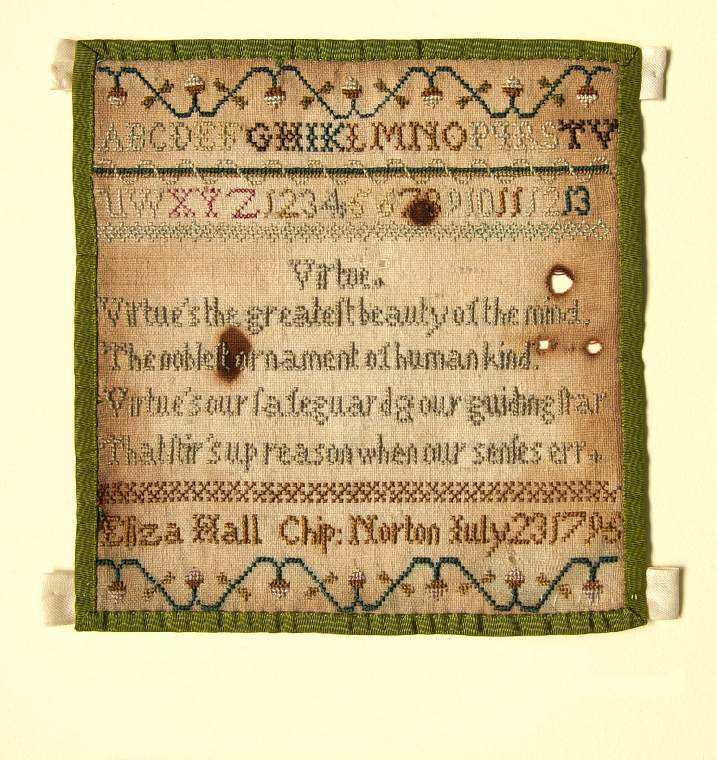 ABCDEFGHIKLMNOPQRSTV
UWXYZ12345678910111213
Virtue.
Virtue's the greateſt beauty of the mind,
The nobleſt ornament of human kind.
Virtue's our ſafeguard & our guiding ſtar
That ſtir's up reason when our senſes err.
Eliza Hall Chip: Norton July 23 1796